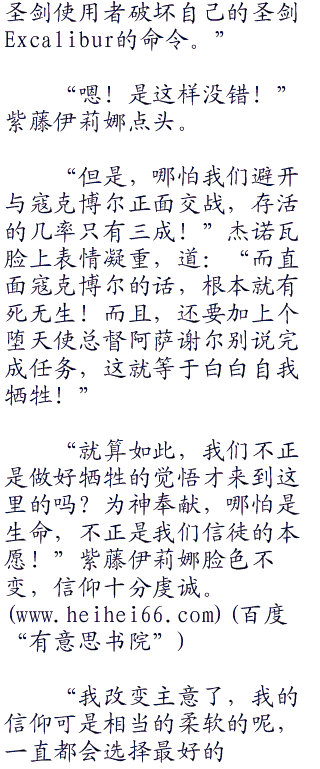 圣剑使用者破坏自己的圣剑
Excalibur的命令。”
“嗯！是这样没错！”
紫藤伊莉娜点头。
“但是，哪怕我们避开
与寇克博尔正面交战，存活
的几率只有三成！”杰诺瓦
脸上表情凝重，道：“而直
面寇克博尔的话，根本就有
死无生！而且，还要加上个
堕天使总督阿萨谢尔别说完
成任务，这就等于白白自我
牺牲！”
“就算如此，我们不正
是做好牺牲的觉悟才来到这
里的吗？为神奉献，哪怕是
生命，不正是我们信徒的本
愿！”紫藤伊莉娜脸色不
变，信仰十分虔诚。
(www.heihei66.com)(百度
“有意思书院”)
“我改变主意了，我的
信仰可是相当的柔软的呢，
一直都会选择最好的